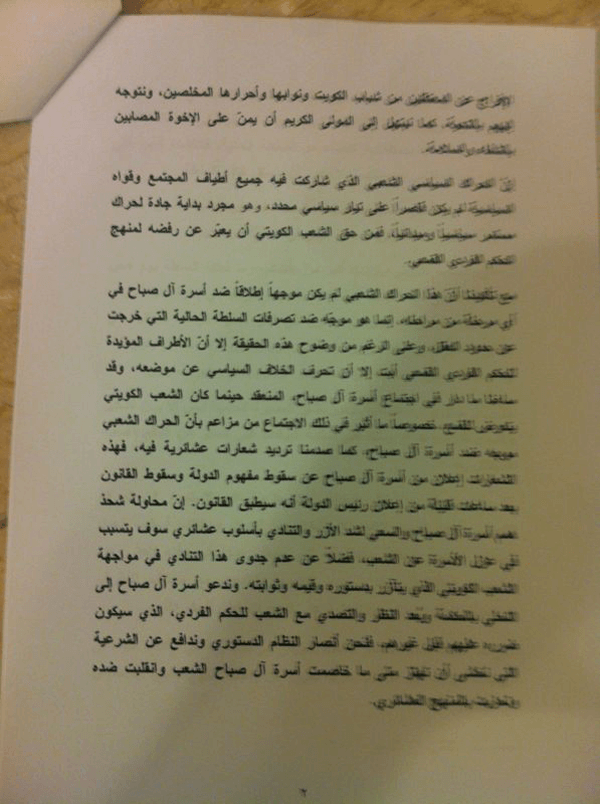 الإفراج عن المعتقلين من شباب الكويت ونوابها وأحرارها المخلصين، ونتوجه
إليهم بالتحية. كما نبتهل إلى المولى الكريم أن يمنّ على الإخوة المصابين
بالشفاء والسلامة.
إنّ الحراك السياسي الشعبي الذي شاركت فيه جميع أطياف المجتمع وقواه
السياسية لم يكن قاصراً على تيار سياسي محدد، وهو مجرد بداية جادة لحراك
مستمر سياسياً وميدانياً. فمن حق الشعب الكويتي أن يعبّر عن رفضه لمنهج
الحكم الفردي القمعي.
مع تأكيدنا أنّ هذا الحراك الشعبي لم يكن موجهاً إطلاقاً ضد أسرة آل صباح في
أي مرحلة من مراحله. إنما هو موجّه ضد تصرفات السلطة الحالية التي خرجت
عن حدود العقل. وعلى الرغم من وضوح هذه الحقيقة إلا أنّ الأطراف المؤيدة
للحكم الفردي القمعي أبت إلا أن تحرف الخلاف السياسي عن موضعه، وقد
ساءنا ما دار في اجتماع أسرة آل صباح، المنعقد حينما كان الشعب الكويتي
يتعرض للقمع، خصوصاً ما أثير في ذلك الاجتماع من مزاعم بأنّ الحراك الشعبي
موجه ضد أسرة آل صباح، كما صدمنا ترديد شعارات عشائرية فيه، فهذه
الشعارات إعلان من أسرة آل صباح عن سقوط مفهوم الدولة وسقوط القانون
بعد ساعات قليلة من إعلان رئيس الدولة أنه سيطبق القانون. إنّ محاولة شحذ
همم أسرة آل صباح والسعي لشد الأزر والتنادي بأسلوب عشائري سوف يتسبب
في عزل الأسرة عن الشعب، فضلاً عن عدم جدوى هذا التنادي في مواجهة
الشعب الكويتي الذي يتأزّر بدستوره وقيمه وثوابته. وندعو أسرة آل صباح إلى
التحلي بالحكمة وبُعد النظر والتصدي مع الشعب للحكم الفردي، الذي سيكون
ضرره عليهم قبل غيرهم. فنحن أنصار النظام الدستوري وندافع عن الشرعية
التي نخشى أن تهتز متى ما خاصمت أسرة آل صباح الشعب وانقلبت ضده
بالمنهج العشائري.
٢